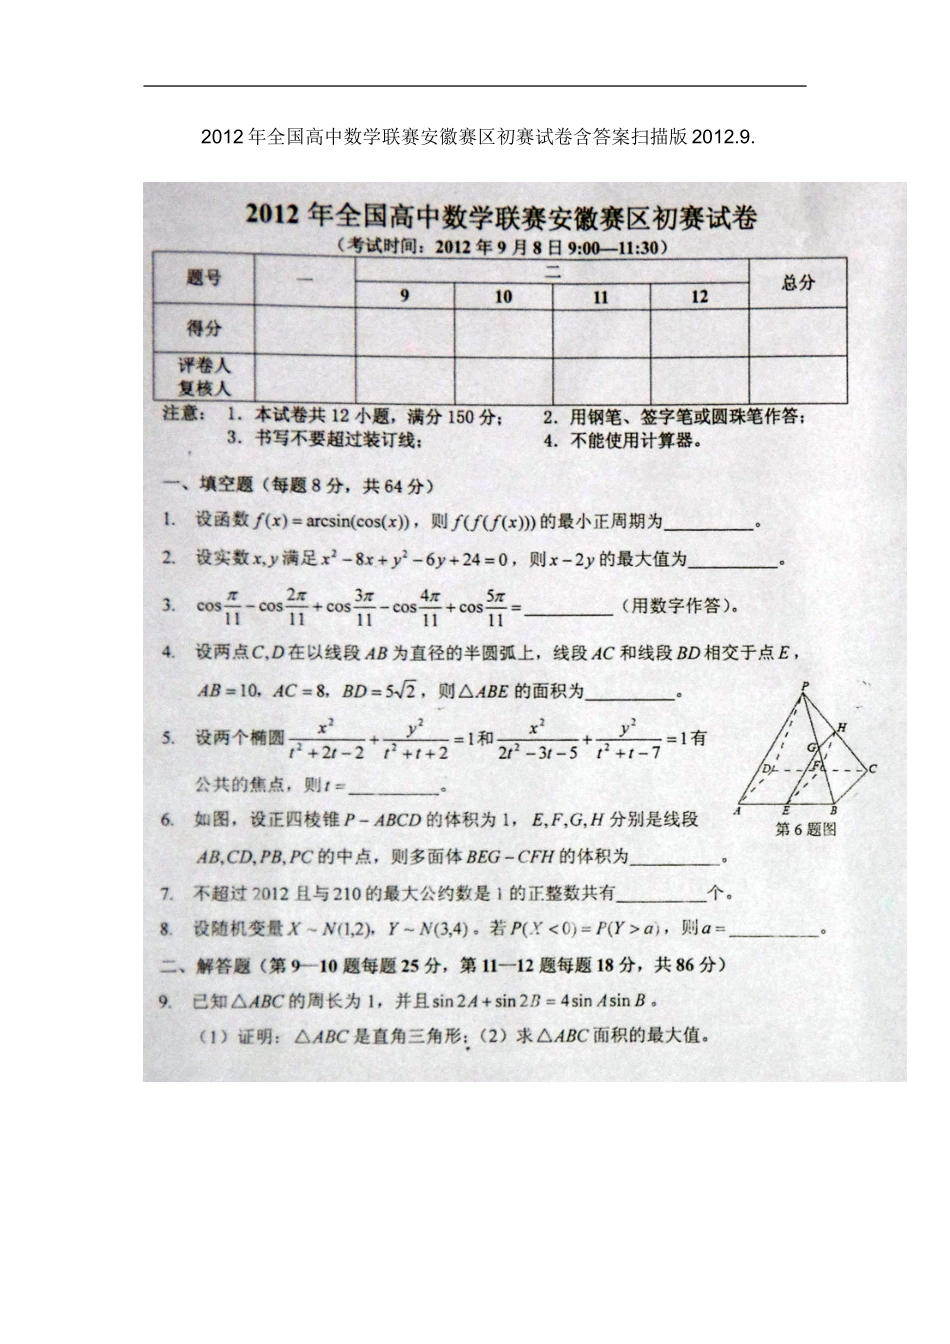 2012 年全国高中数学联赛安徽赛区初赛试卷含答案扫描版 2012.9.
2012 年全国高中数学联赛安徽赛区初赛试卷
（考试时间：2012 年 9 月 8 日 9:00—11:30）
题号 一 二 总分
9 10 11 12
得分
评卷人
复核人
注意： 1．本试卷共 12 小题，满分 150 分； 2．用钢笔、签字笔或圆珠笔作答；
3．书写不要超过装订线； 4．不能使用计算器。
一、填空题（每题 8 分，共 64 分）
1. 设函数 f(x) = arcsin(cos(x))，则 f(f(f(x))) 的最小正周期为________。
2. 设实数 x,y 满足 x² −8x + y² −6y + 24 = 0，则 x − 2y 的最大值为________。
3. cos π/11 − cos 2π/11 + cos 3π/11 − cos 4π/11 + cos 5π/11 = ________（用数字作答）。
4. 设两点 C,D 在以线段 AB 为直径的半圆弧上，线段 AC 和线段 BD 相交于点 E，
AB = 10，AC = 8，BD = 5√2，则 △ABE 的面积为________。
5. 设两个椭圆 x²/(t² + 2t − 2) + y²/(t² + t + 2) = 1 和 x²/(2t² − 3t − 5) + y²/(t² + t − 7) = 1 有
公共的焦点，则 t = ________。
6. 如图，设正四棱锥 P − ABCD 的体积为 1，E,F,G,H 分别是线段
AB,CD,PB,PC 的中点，则多面体 BEG − CFH 的体积为________。
P
H
G
D
F
C
A
E
B
第 6 题图
7. 不超过 2012 且与 210 的最大公约数是 1 的正整数共有________个。
8. 设随机变量 X ~ N(1,2)，Y ~ N(3,4)。若 P(X < 0) = P(Y > a)，则 a = ________。
二、解答题（第 9—10 题每题 25 分，第 11—12 题每题 18 分，共 86 分）
9. 已知 △ABC 的周长为 1，并且 sin 2A + sin 2B = 4sin A sin B。
（1）证明：△ABC 是直角三角形；（2）求 △ABC 面积的最大值。